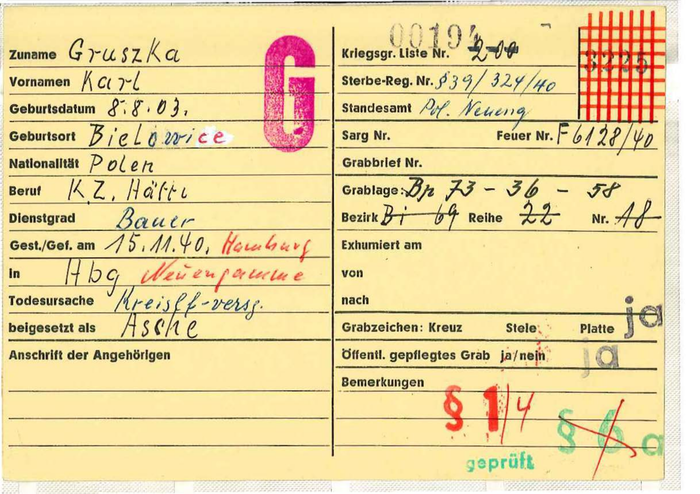 Zuname Gruszka
Vornamen Karl
Geburtsdatum 8.8.03.
Geburtsort Bielowice
Nationalität Polen
Beruf K.Z. Häftl
Dienstgrad Bauer
Gest./Gef. am 15.11.40. Hamburg
in Hbg Neuengamme
Todesursache Kreislf-versg.
beigesetzt als Asche
Anschrift der Angehörigen
G
Kriegsgr. Liste Nr. 2-00
3225
Sterbe-Reg. Nr. § 39/324/40
Standesamt Pol. Neueng
Sarg Nr. Feuer Nr. F6128/40
Grabbrief Nr.
Grablage: Bp 73 - 36 - 58
Bezirk Bi 69 Reihe 22 Nr. 18
Exhumiert am
von
nach
ja
Grabzeichen: Kreuz Stele Platte
Öffentl. gepflegtes Grab ja/nein ja
Bemerkungen
§ 1/4 § 6 a
geprüft